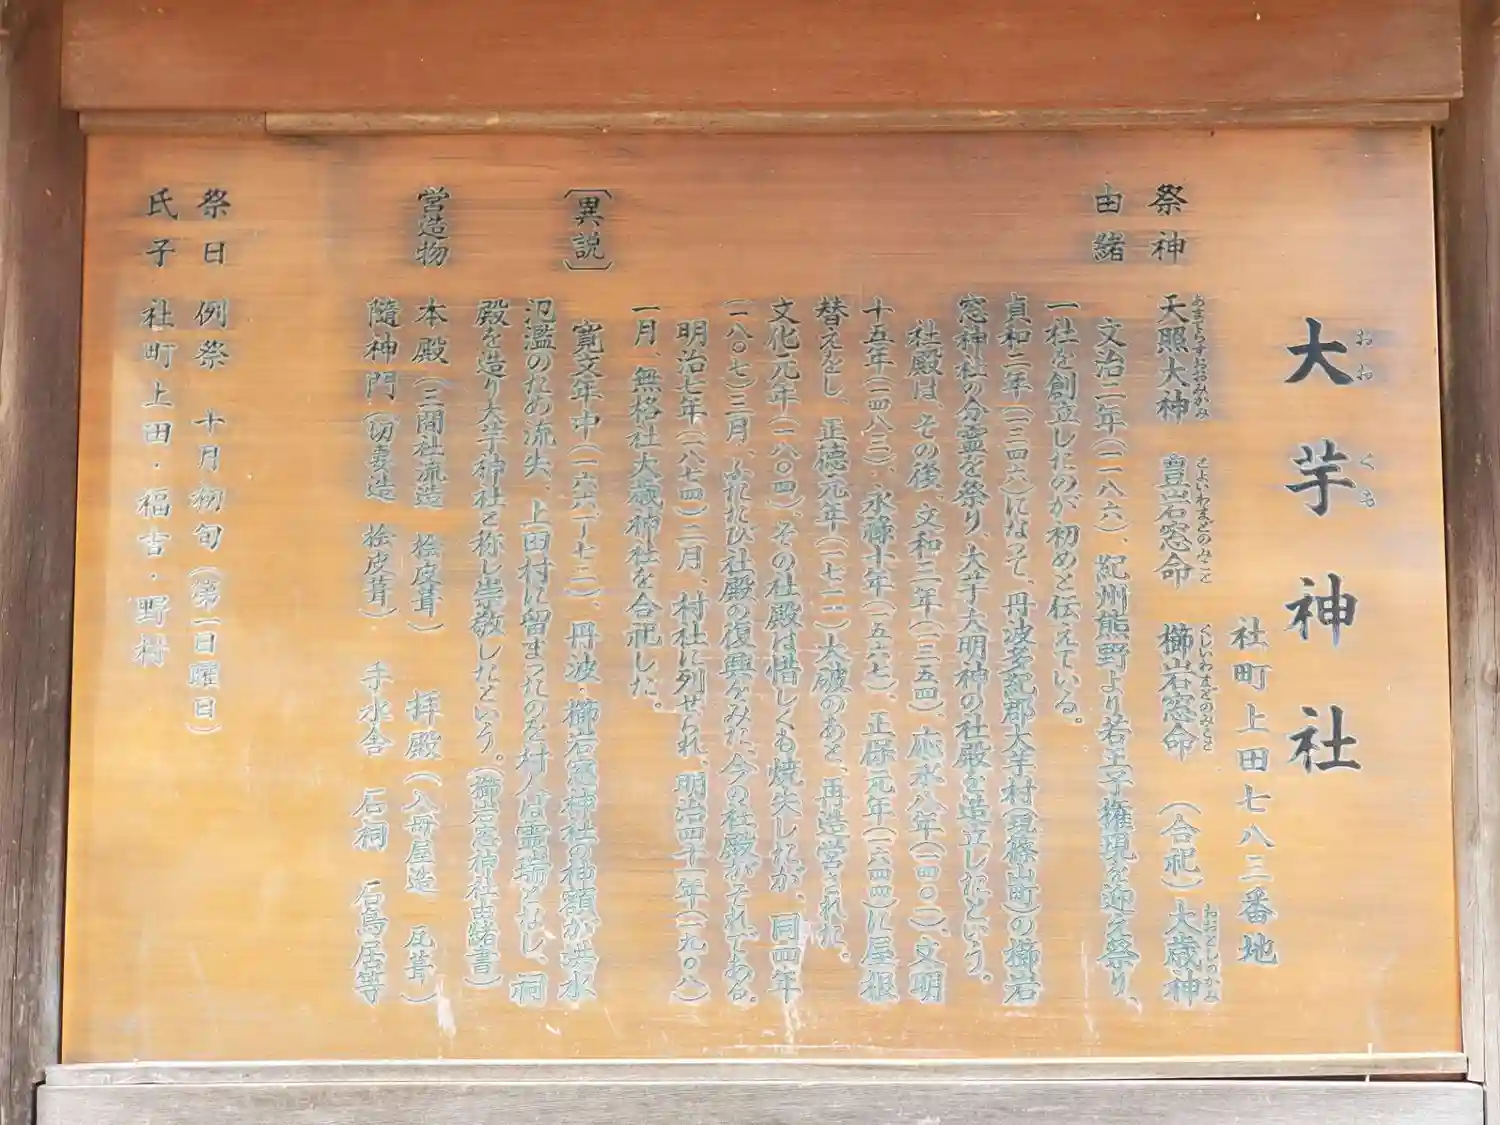 大芋神社
おおくも
社町上田七八三番地
祭神 天照大神 豊岩窓命 櫛岩窓命 (合祀)大歳神
あまてらすおおみかみ とよいわまどのみこと くしいわまどのみこと おおとしのかみ
由緒 文治二年(一一八六)、紀州熊野より若王子権現を迎え祭り、
一社を創立したのが初めと伝えている。
貞和二年(一三四六)になって、丹波多紀郡大芋村(現篠山町)の櫛岩
窓神社の分霊を祭り、大芋大明神の社殿を造立したという。
社殿は、その後、文和三年(一三五四)、応永八年(一四〇一)、文明
十五年(一四八三)、永禄十年(一五六七)、正保元年(一六四四)に屋根
替えをし、正徳元年(一七一一)大破のあと、再造営された。
文化元年(一八〇四)、その社殿は惜しくも焼失したが、同四年
(一八〇七)三月、ふたたび社殿の復興をみた。今の社殿がそれである。
明治七年(一八七四)二月、村社に列せられ、明治四十一年(一九〇八)
一月、無格社大歳神社を合祀した。
〔異説〕 寛文年中(一六六一〜七二)、丹波・櫛岩窓神社の神額が洪水
氾濫のため流失、上田村に留まったのを村人は霊瑞となし、祠
殿を造り大芋神社と称し崇敬したという。(櫛岩窓神社由緒書)
営造物 本殿(三間社流造 桧皮葺) 拝殿(入母屋造 瓦葺)
隨神門(切妻造 桧皮葺) 手水舎 石祠 石鳥居等
祭日 例祭 十月初旬(第一日曜日)
氏子 社町上田・福吉・野村